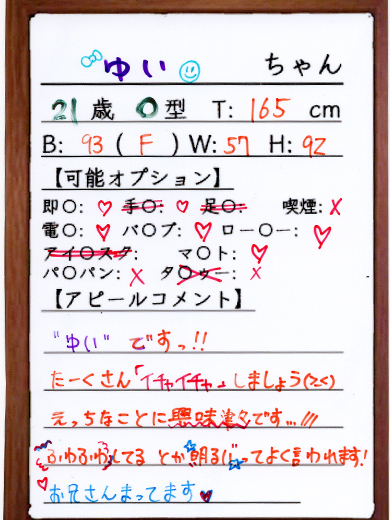 ゆい ちゃん
21歳 O型 T: 165 cm
B: 93 ( F ) W: 57 H: 92
【可能オプション】
即〇: ♡ 手〇: ♡ 足〇: 喫煙: X
電〇: ♡ バ〇ブ: ♡ ロー〇ー: ♡
アイ〇スク: マ〇ト: ♡
パ〇パン: X タ〇ゥー: X
【アピールコメント】
"ゆい" ですっ!!
たーくさん「イチャイチャ」しましょう(ζく)
えっちなことに興味津々です...///
ふわふわしてる とか 明るい ってよく言われます!
♡お兄さんまってます♥